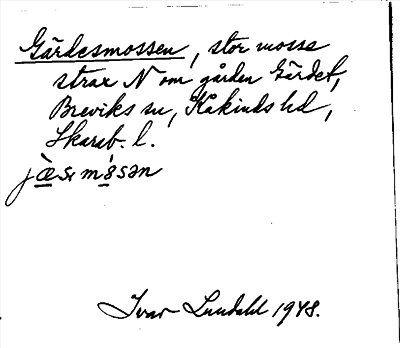 Gärdesmossen, stor mosse
strax N om gården Gärdet,
Breviks sn, Kåkinds hd,
Skarab. l.
Ivar Lundahl 1948.